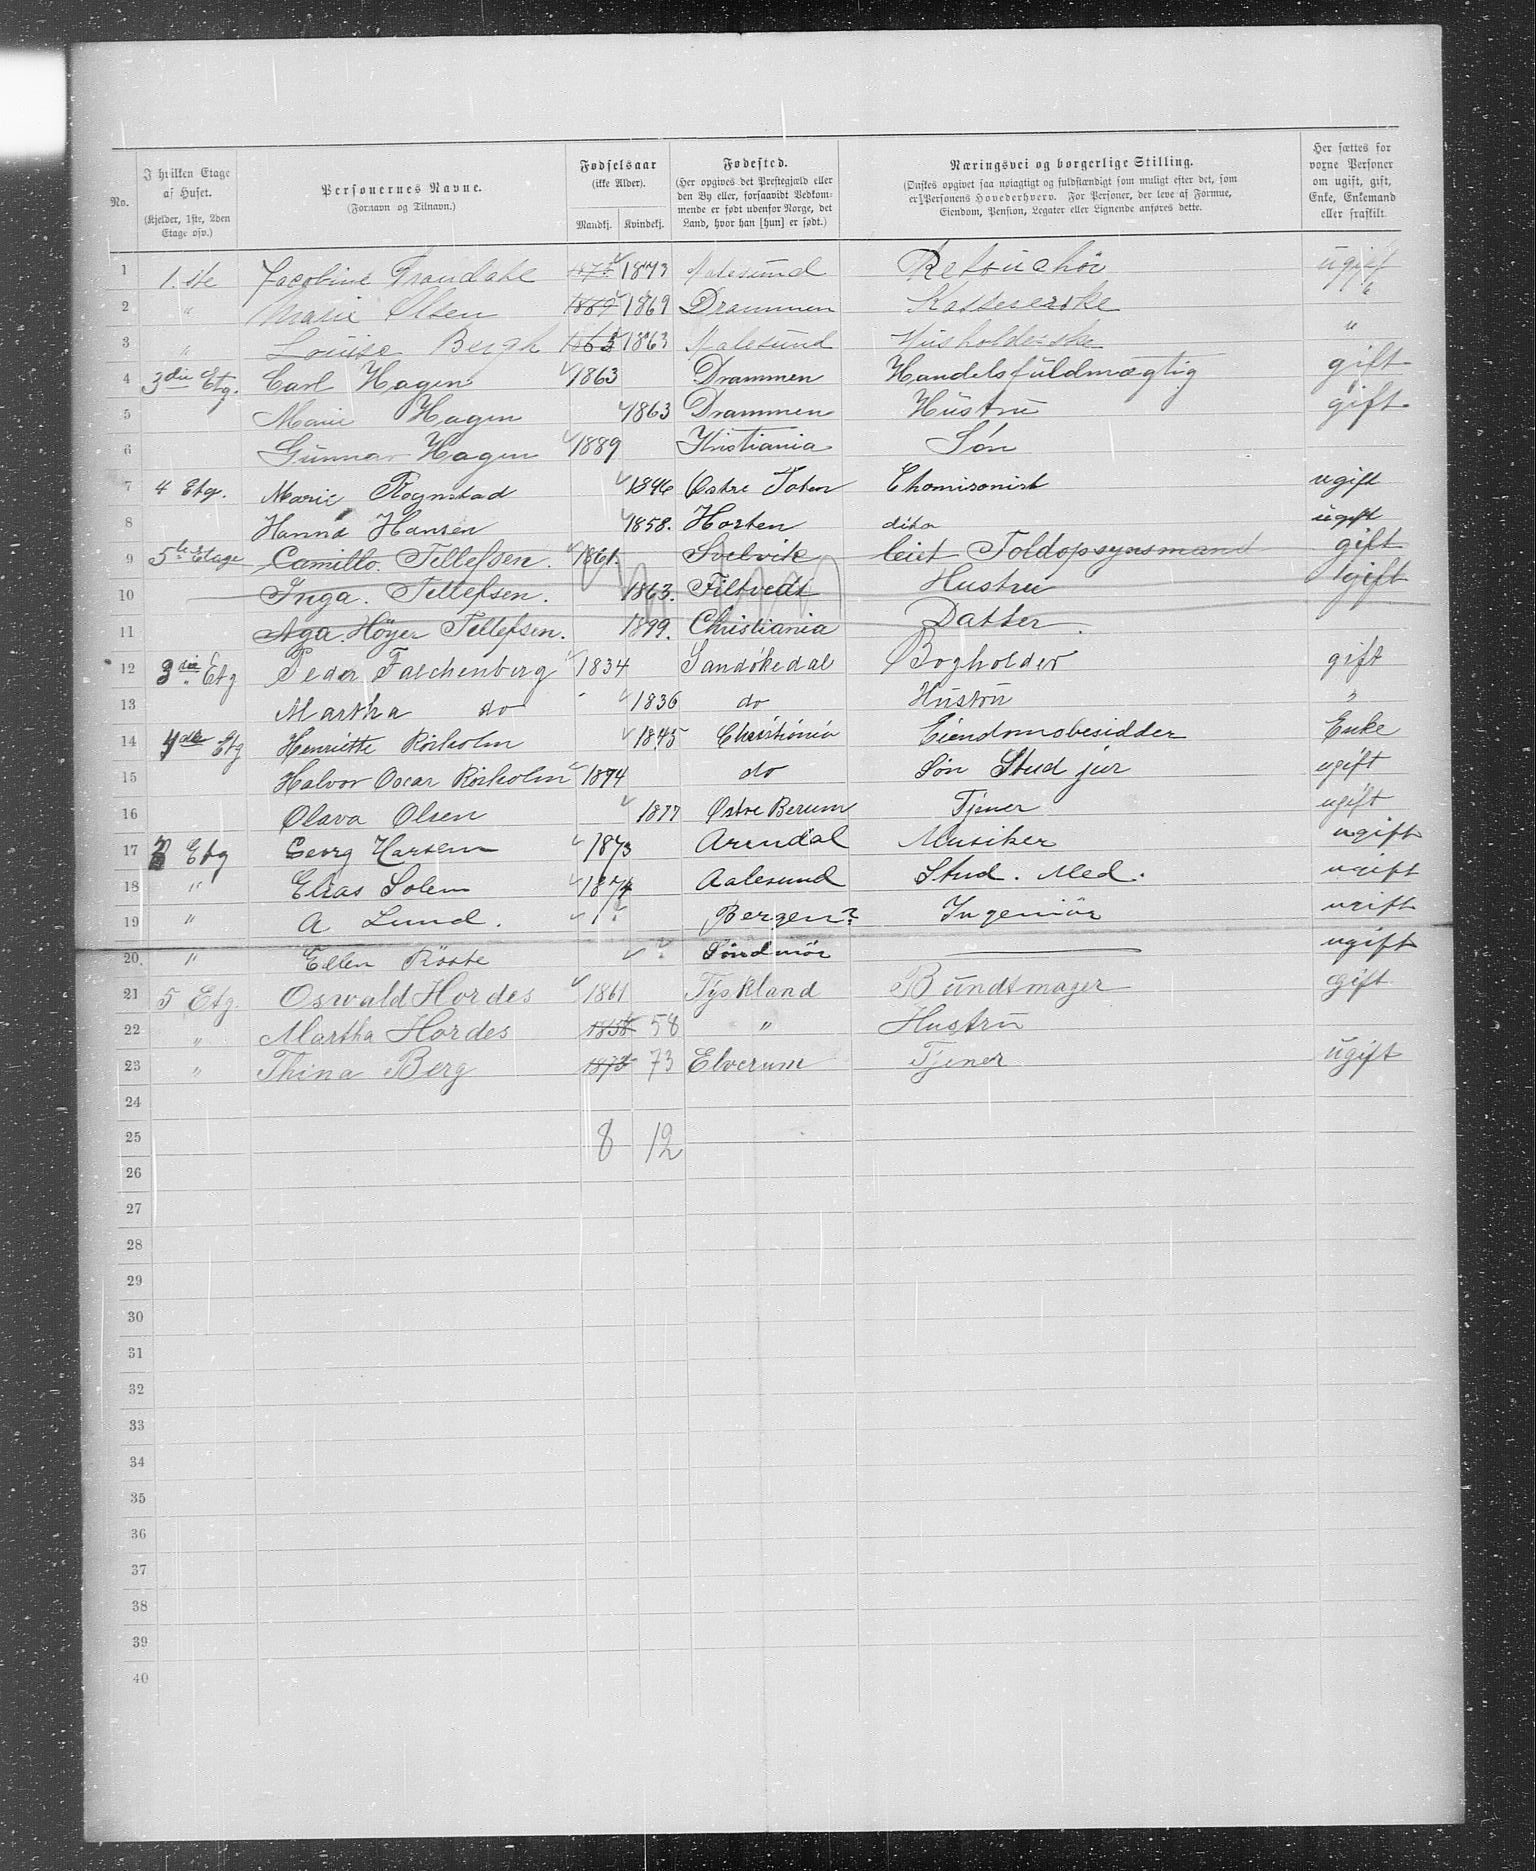 No.
I hvilken Etage af Huset.
(Kjelder, 1ste, 2den Etage osv.)
Personernes Navne.
(Fornavn og Tilnavn.)
Fødselsaar
(ikke Alder).
Mandkj. Kvindekj.
Fødested.
(Her opgives det Prestegjæld eller
den By eller, forsaavidt Vedkom-
mende er født udenfor Norge, det
Land, hvor han [hun] er født.)
Næringsvei og borgerlige Stilling.
(Ønskes opgivet saa nøiagtigt og fuldstændigt som muligt efter det, som
er Personens Hovederhverv. For Personer, der leve af Formue,
Eiendom, Pension, Legater eller Lignende anføres dette.
Her sættes for
voxne Personer
om ugift, gift,
Enke, Enkemand
eller fraskilt.
1 1. ste Jacobine 1873 Aalesund Retouchör ugift
2 " Marie Olsen 1869 1869 Drammen Kassererske "
3 " Louise Bergh 1863 1863 Aalesund Husholderske "
4 3die Etg. Carl Hagen 1863 Drammen Handelsfuldmægtig gift
5 Marie Hagen 1863 Drammen Hustru gift
6 Gunnar Hagen 1889 Kristiania Søn
7 4 Etg. Marie Rognstad 1846 Østre Toten ugift
8 Hanna Hansen 1858. Horten dito ugift
9 5te Etage Camillo. Tellefsen. 1861. Svelvik leiet Toldopsynsmand gift
10 Inga. Tellefsen. 1863. Filtvedt Hustru gift
11 Aga. Höyer Tellefsen. 1899. Christiania Datter.
12 3die Etg Peder Falchenberg 1834 Sandökedal Bogholder gift
13 Martha do 1836 do Hustru "
14 4de Etg Henriette Rörholm 1845 Christiania Eiendomsbesidder Enke
15 Halvor Oscar Rörholm 1874 do Søn Stud jur ugift
16 Olava Olsen 1877 Østre Berum Tjener ugift
17 Etg Georg Hansen 1873 Arendal Musiker ugift
18 " Elias Solem 1874 Aalesund Stud. Med. ugift
19 " A Lund. ? Bergen? Ingeniör ugift
20. " Ellen Röste ? Söndmör ugift
21 5 Etg. Oswald Hordes 1861 Tyskland Bundtmager gift
22 " Martha Hordes 1858 58 " Hustru
23 " Thina Berg 1873 73 Elverum Tjener ugift
24
25 8 12
26
27
28
29
30
31
32
33
34
35
36
37
38
39
40